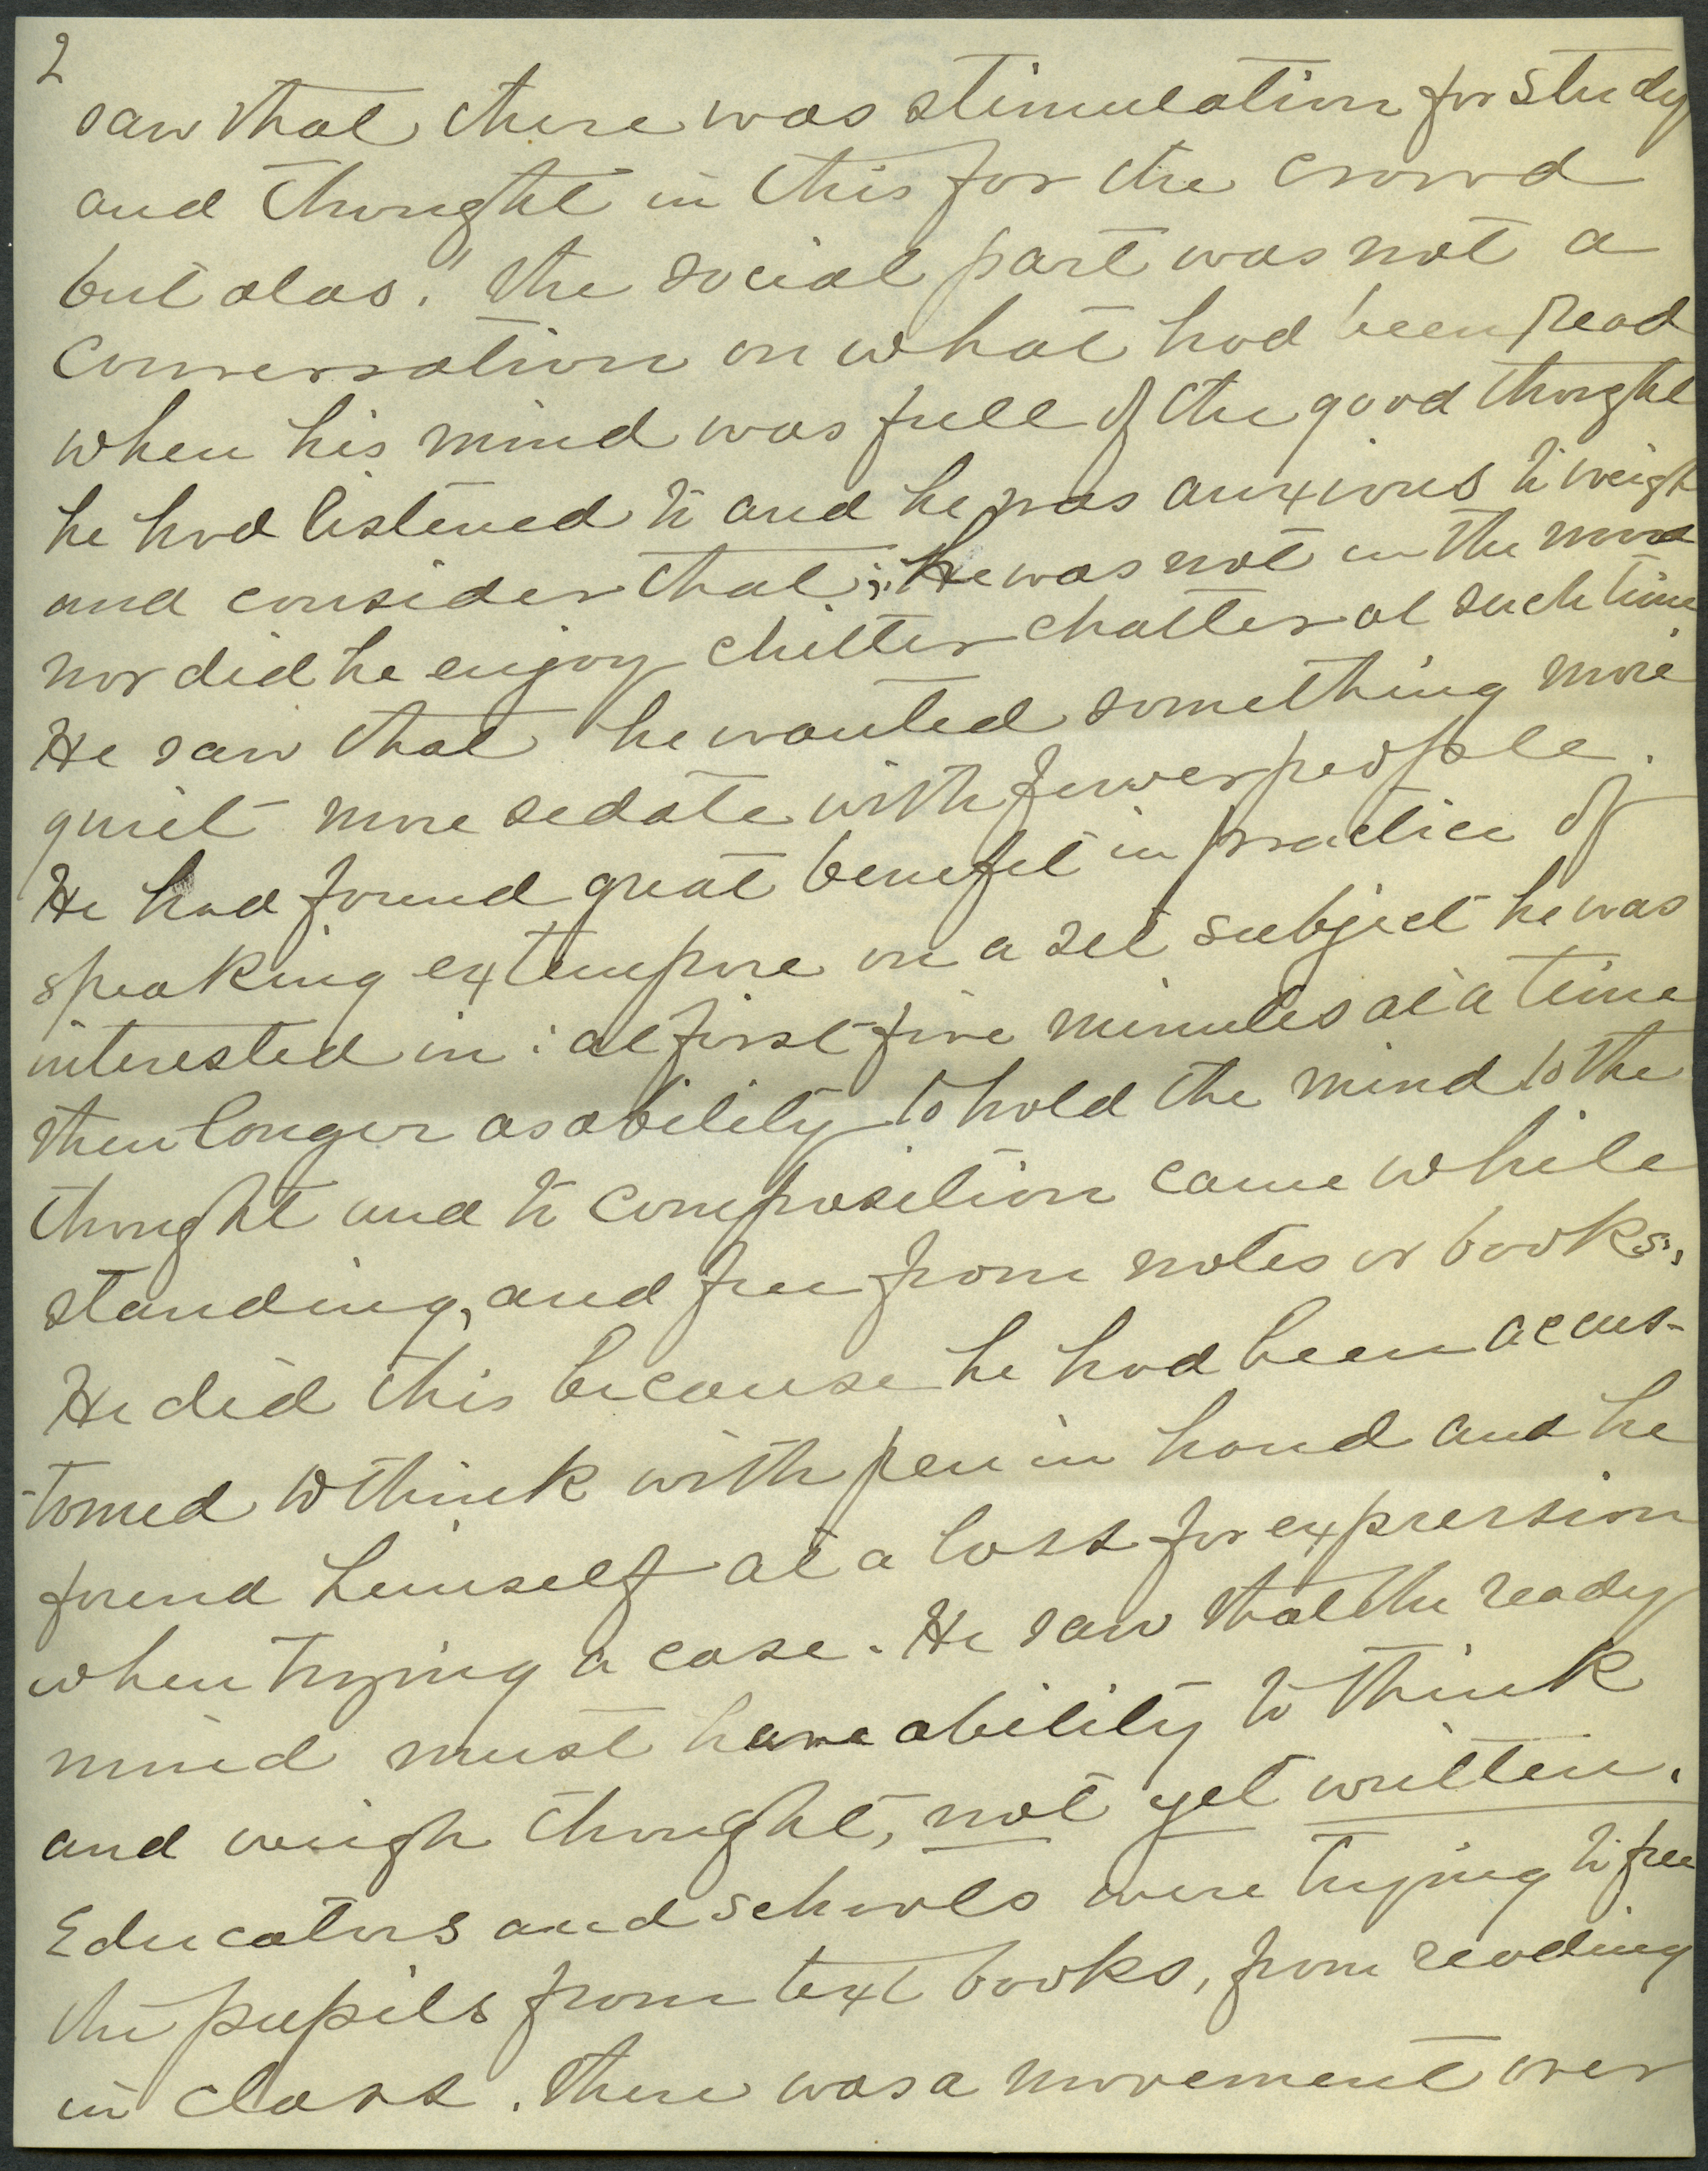 2
saw that there was stimulation for study
and thought in this for the crowd
but alas! the social part was not a
conversation on what had been read
when his mind was full of the good thought
he had listened to and he was anxious to weigh
and consider that; he was not in the mood
nor did he enjoy chitter chatter at such time
He saw that he wanted something more
quiet more sedate with fewer people.
He had found great benefit in practice of
speaking extempore on a set subject he was
interested in: at first five minutes at a time
then longer as ability to hold the mind to the
thought and to composition came while
standing, and free from notes or books.,
He did this because he had been accus-
-tomed to think with pen in hand and he
found himself at a loss for expression
when trying a case. He saw that the ready
mind must have ability to think
and weigh thought, not yet written.
Educators and schools were trying to free
the pupils from text books, from reading
in class. there was a movement over